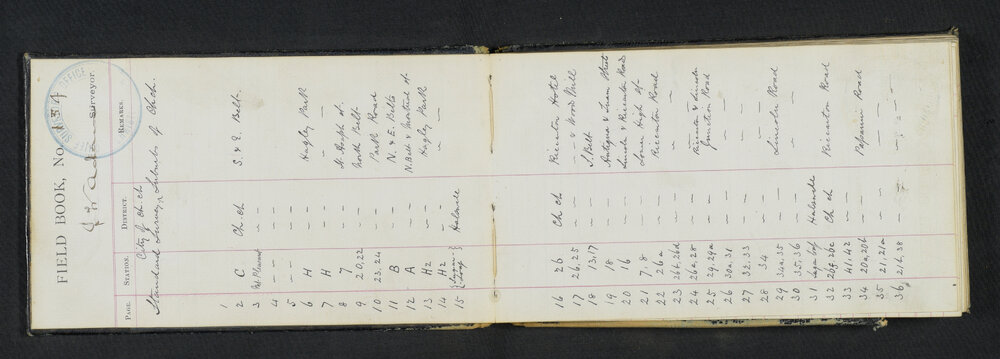 FIELD BOOK, No. 134
Surveyor.
PAGE. STATION. DISTRICT. REMARKS.
City of Ch.ch
Standard Survey, Suburbs of Ch.ch.
1
2 C Ch ch S. & E. Belt.
3 — —
4 — — —
5 — — —
6 H — Hagley Park
7 H — —
8 7 — St. Asaph St.
9 20,22 — North Belt
10 23.24 — Park Road
11 B — N. & E. Belts
12 A — N. Belt & Montreal St.
13 H2 — Hagley Park
14 H2 — —
15 Halswell
16 26 Ch ch Riccarton Hotel
17 26,25 — — &
18 13,17 — S. Belt
19 18 — Antigua & Street
20 16 — Lincoln & Riccarton Road
21 7.8 — Lower High St.
22 26a — Riccarton Road
23 26b,26d — —
24 26a,28 — Riccarton & Lincoln
25 29,29a — Junction Road
26 30a.31 — —
27 32.33 — —
28 34 — Lincoln Road
29 34a,35 — —
30 35,36 — —
31 Halswell
32 26f.26c Ch ch Riccarton Road
33 41.42 — —
34 20a,20b — Papanui Road
35 21,21a — —
36 21b.38 — —